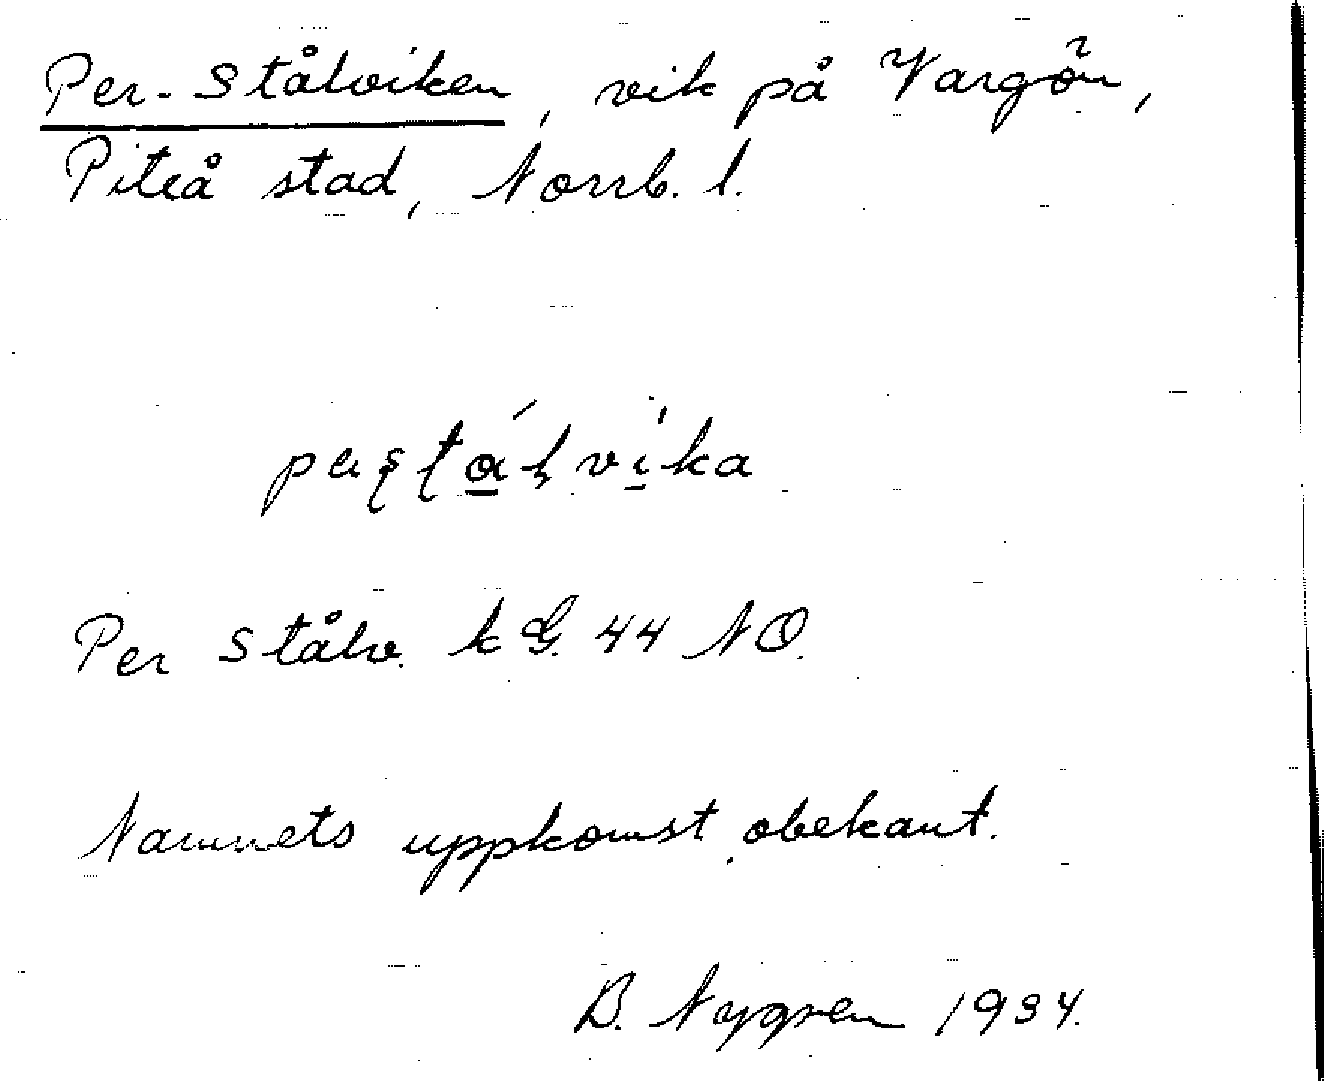 Per-Stålviken, vik på Vargön,
Piteå stad, Norrb. l.
Per Stålv. kG. 44 NO.
Namnets uppkomst obekant.
B. Nygren 1934.